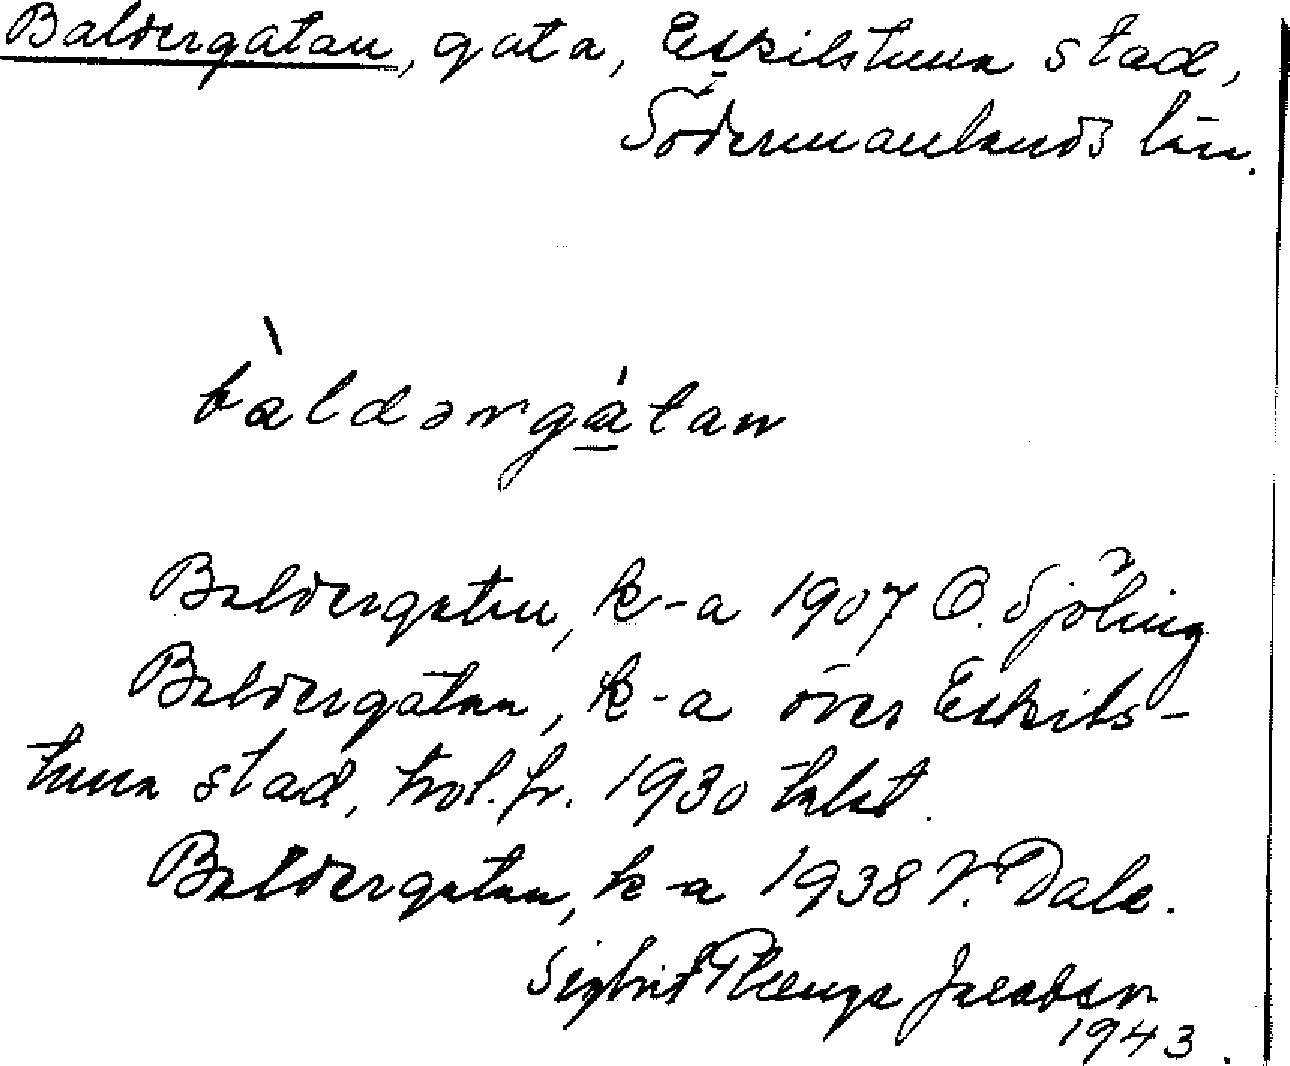 Baldergatan, gata, Eskilstuna stad,
Södermanlands län.
bàldərgátan
Baldergatan, k-a 1907 O. Sjöling
Baldergatan, k-a över Eskils-
tuna stad, trol. fr. 1930 talet.
Baldergatan, k-a 1938 V. Dale.
Sigbrit Plænge Jacobson
1943.